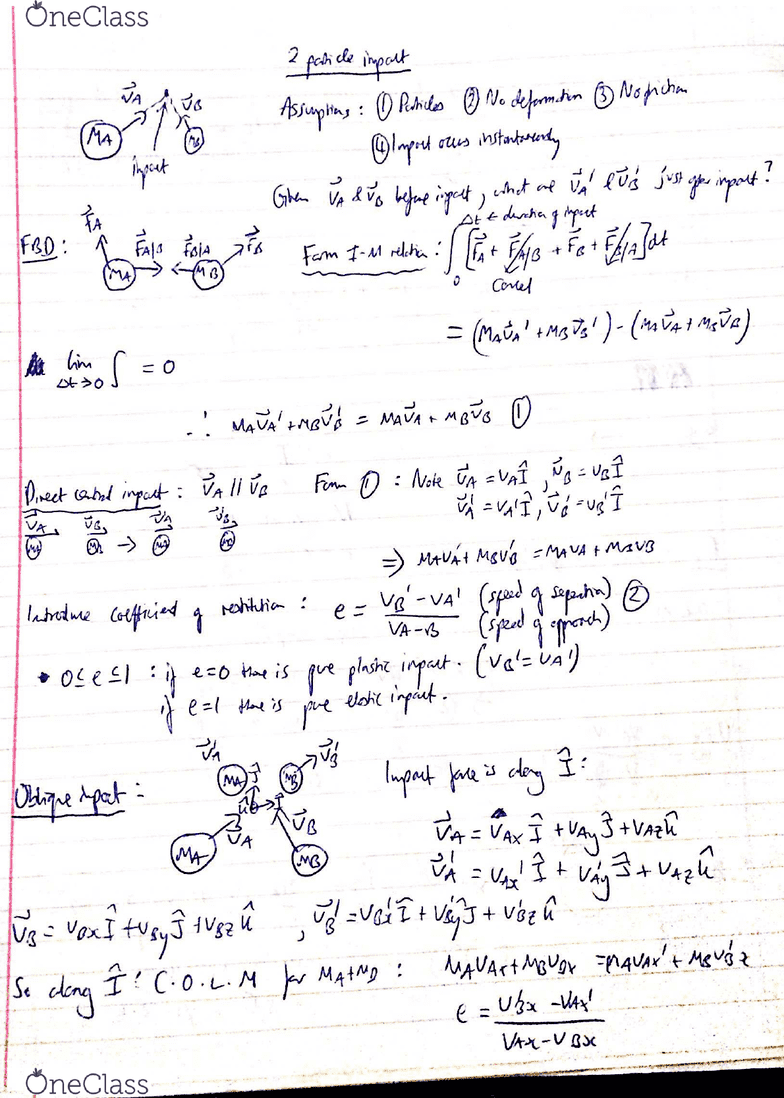 OneClass
2 particle impact
Assumptions : ① Particles ② No deformation ③ No friction
④ Impact occurs instantaneously
V⃗A V⃗B
MA MB
impact
Given V⃗A & V⃗B before impact, what are V⃗A' & V⃗B' just after impact?
Δt ← duration of impact
FBD : F⃗A F⃗A|B F⃗B|A F⃗B
MA MB
From I-M relation : ∫₀ [F⃗A + F⃗A|B + F⃗B + F⃗B|A] dt
Cancel
= (MAV⃗A' + MBV⃗B') - (MAV⃗A + MBV⃗B)
lim Δt→0 ∫ = 0
∴ MAV⃗A' + MBV⃗B' = MAV⃗A + MBV⃗B ①
Direct central impact : V⃗A // V⃗B From ① : Note V⃗A = VAÎ, V⃗B = VBÎ
V⃗A' = VA'Î, V⃗B' = VB'Î
V⃗A V⃗B → V⃗A' V⃗B'
MA MB MA MB
⇒ MAVA' + MBVB' = MAVA + MBVB
Introduce coefficient of restitution : e = (VB' - VA') / (VA - B) (speed of separation) (speed of approach) ②
• 0 ≤ e ≤ 1 : if e=0 there is pure plastic impact. (VB' = VA')
if e=1 there is pure elastic impact.
Oblique impact :
V⃗A' V⃗B'
MA Ĵ MB
k̂ Î
V⃗A V⃗B
MA MB
Impact force is along Î :
V⃗A = VAx Î + VAy Ĵ + VAz k̂
V⃗A' = VAx' Î + VAy' Ĵ + VAz k̂
V⃗B = VBx Î + VBy Ĵ + VBz k̂ , V⃗B' = VBx' Î + VBy' Ĵ + VBz' k̂
So along Î : C.O.L.M for MA + MB : MAVAx + MBVBx = MAVAx' + MBVB'z
e = (VBx' - VAx') / (VAx - VBx)
OneClass